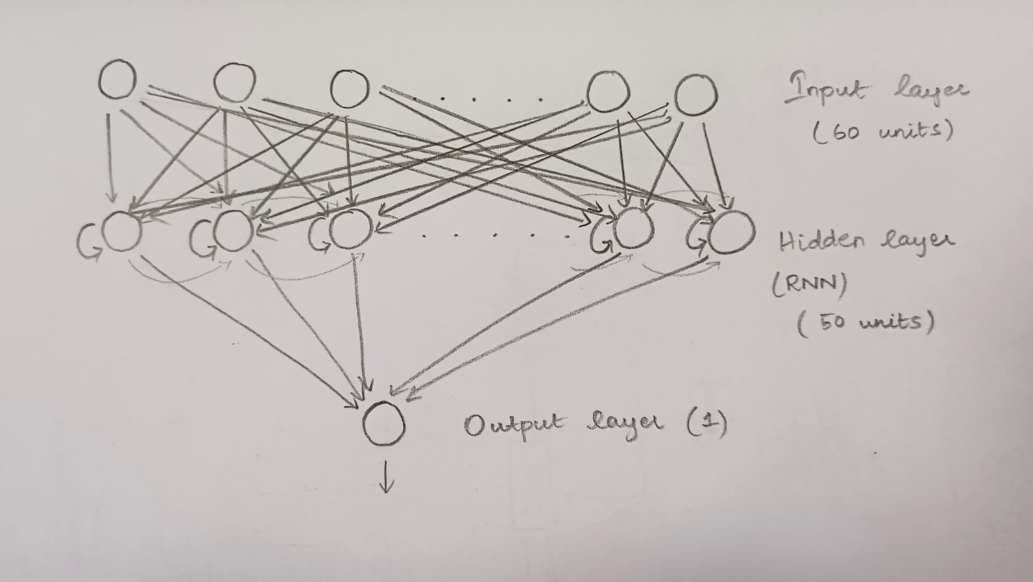 Input layer
(60 units)
Hidden layer
(RNN)
(50 units)
Output layer (1)